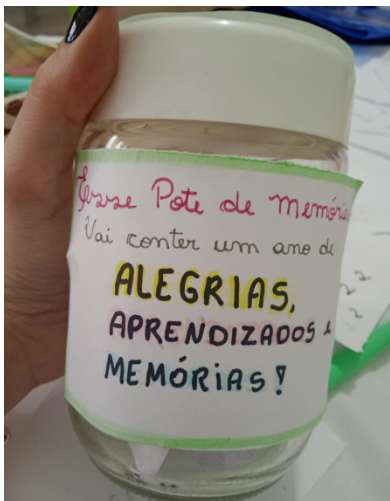 Esse Pote de Memória
Vai conter um ano de
ALEGRIAS,
APRENDIZADOS e
MEMÓRIAS!